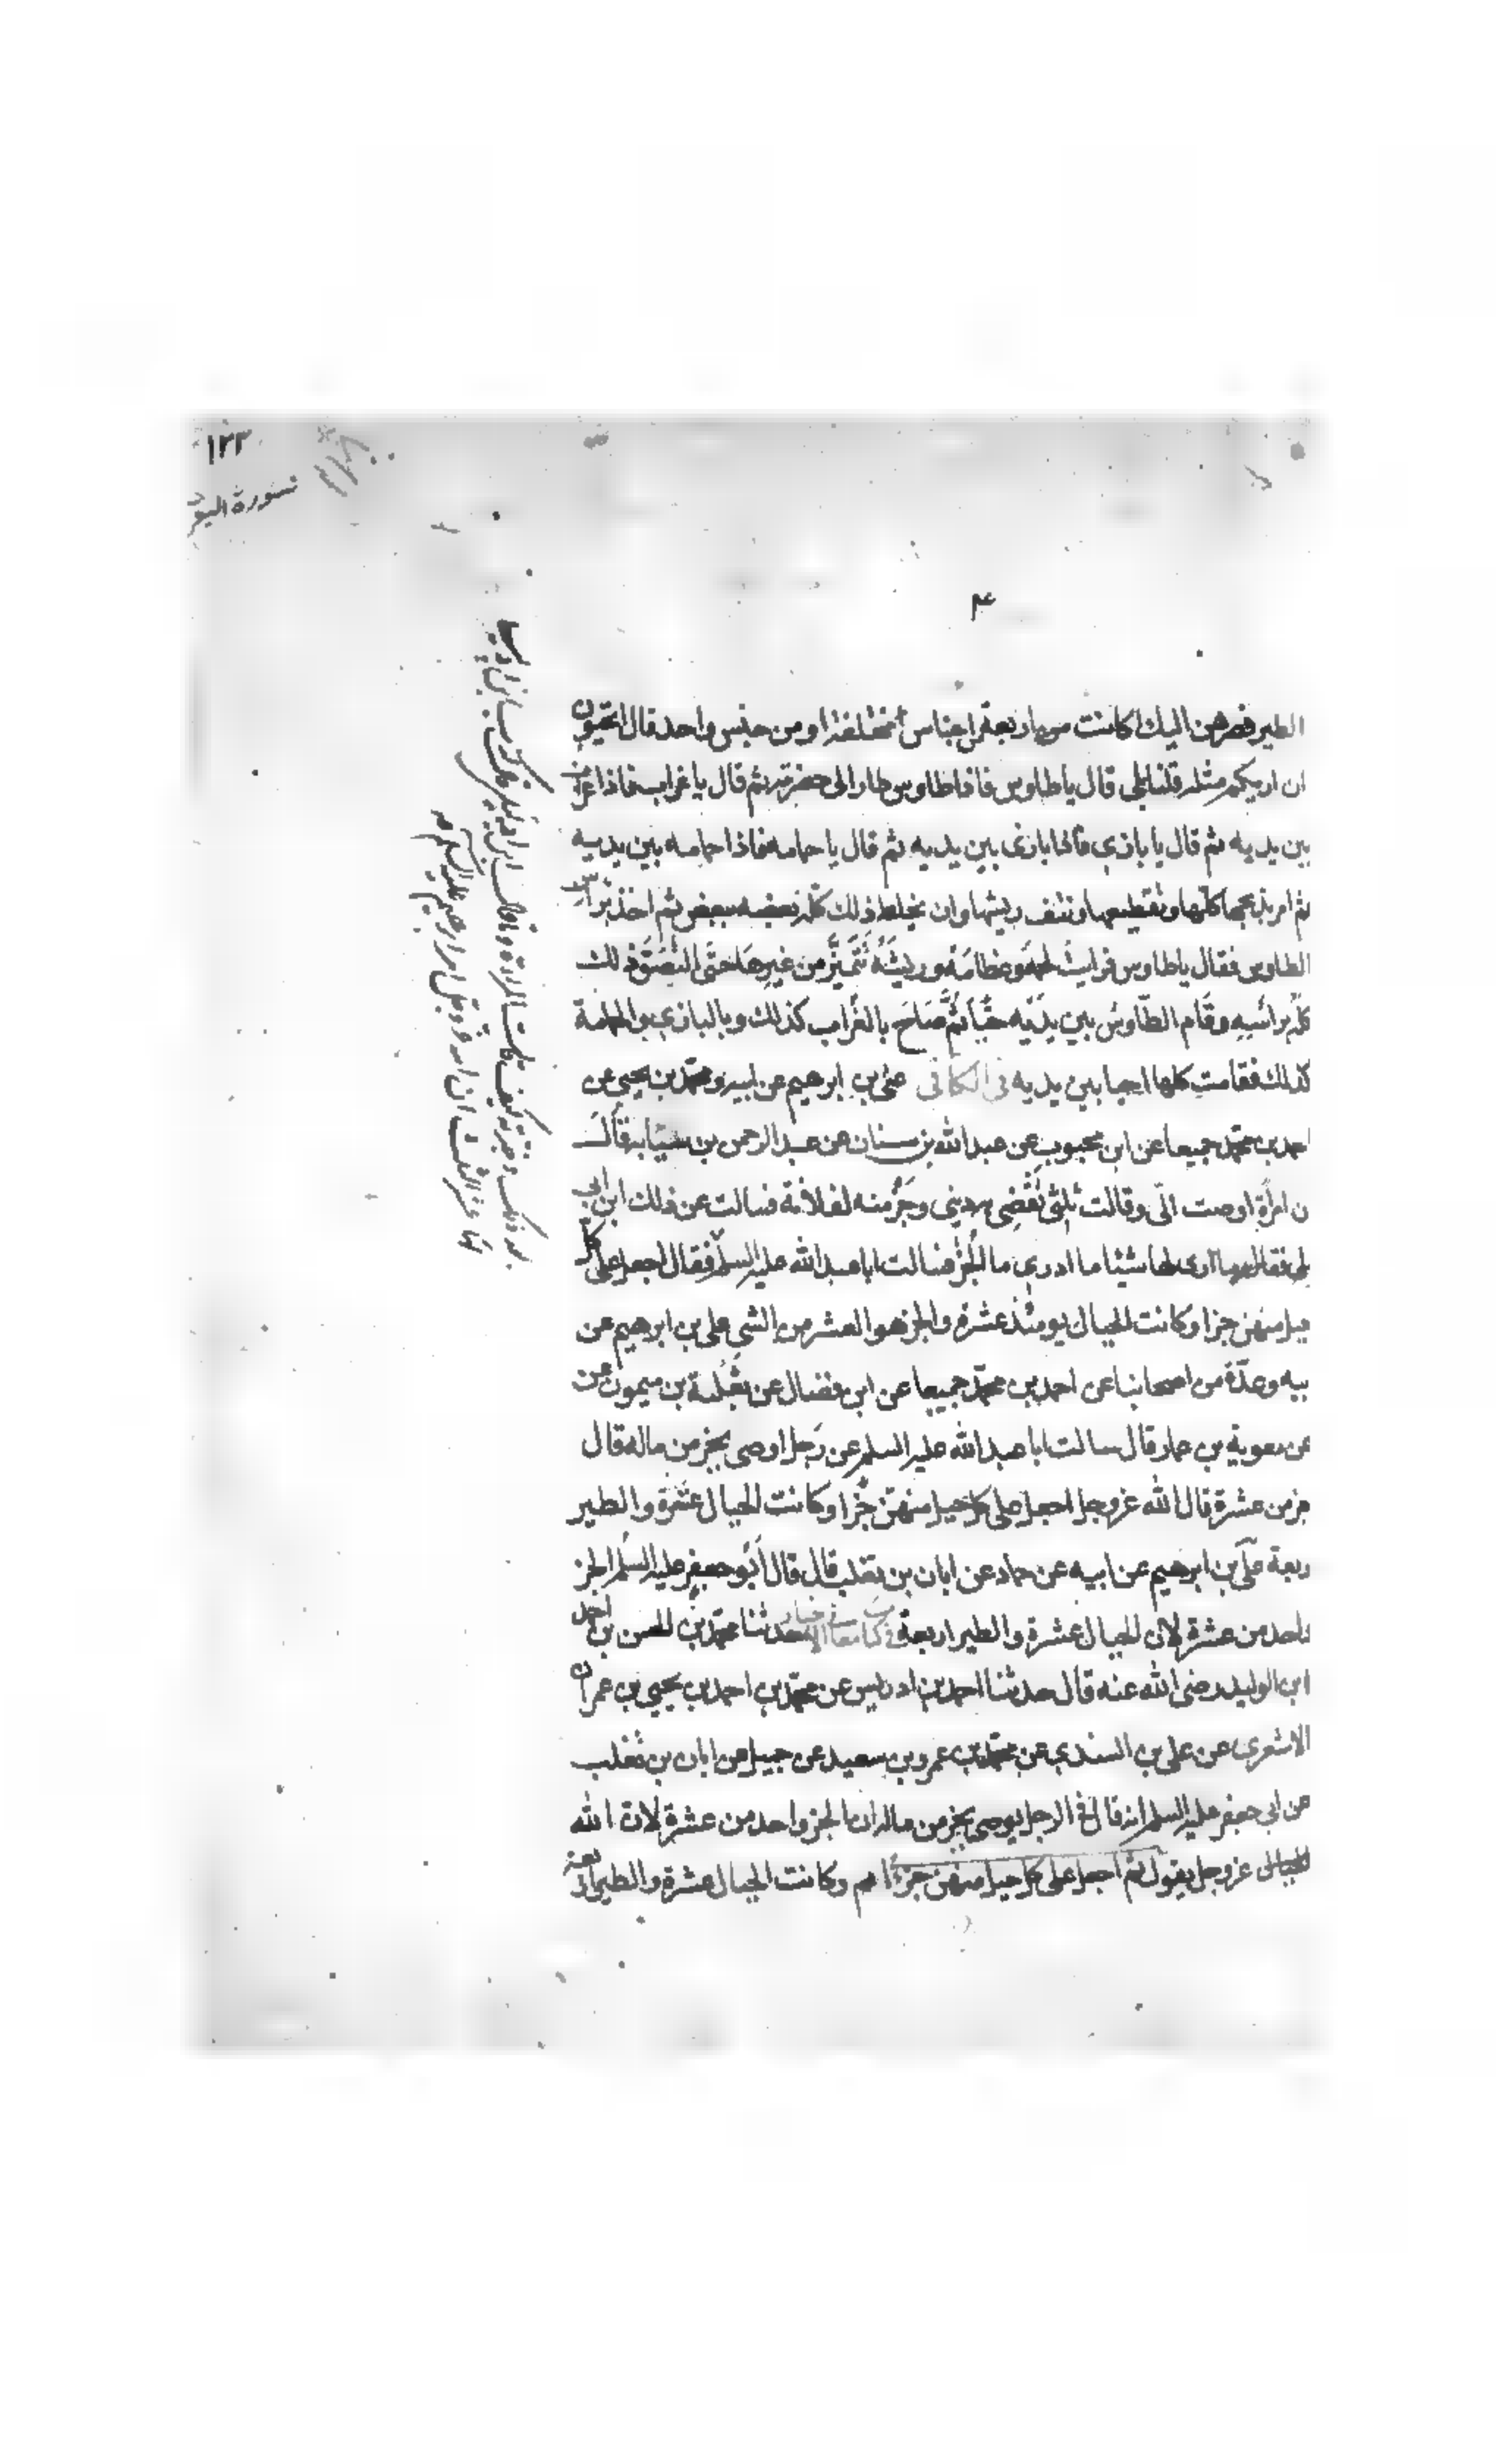 ١٢٣
سورة البقرة
٤
الطير فصرهن اليك اكانت من اربعة من اجناس مختلفة او من جنس واحد قال اتحبون
ان اريكم مثله قلنا بلى قال يا طاوس فاذا طاوس طار الى حضرته ثم قال يا غراب فاذا غراب
بين يديه ثم قال يا بازى فاذا بازى بين يديه ثم قال يا حمامه فاذا حمامه بين يديه
ثم امر بذبحها كلها وتقطيعها ونتف ريشها وان يخلط ذلك كله بعضه ببعض ثم اخذ براس
الطاوس فقال يا طاوس فرايت لحمه وعظامه وريشه تتميز من غيرها حتى التصق ذلك
كله براسه وقام الطاوس بين يديه حيا ثم صاح بالغراب كذلك وبالبازى والحمامة
كذلك فقامت كلها احيا بين يديه فى الكافى على بن ابرهيم عن ابيه ومحمد بن يحيى عن
احمد بن محمد جميعا عن ابن محبوب عن عبد الله بن سنان عن عبد الرحمن بن سيابه قال
ن امراة اوصت الى وقالت ثلثى تقضى به دينى وجزء منه لفلانة فسالت عن ذلك ابن ابى
ليلى فقال ما ارى لها شيئا ما ادرى ما الجز فسالت ابا عبد الله عليه السلم فقال اجعل على كل
جبل منهن جزا وكانت الجبال يومئذ عشرة والجز هو العشر من الشى على بن ابرهيم عن
بيه وعدة من اصحابنا عن احمد بن محمد جميعا عن ابن فضال عن ثعلبة بن ميمون عن
عن معوية بن عمار قال سالت ابا عبد الله عليه السلم عن رجل اوصى بجز من ماله قال
جز من عشرة قال الله عز وجل اجعل على كل جبل منهن جزا وكانت الجبال عشرة والطير
ربعة على بن ابرهيم عن ابيه عن حماد عن ابان بن تغلب قال قال ابو جعفر عليه السلم الجز
واحد من عشرة لان الجبال عشرة والطير اربعة فى كتاب معانى الاخبار حدثنا محمد بن الحسن بن احمد
ابن الوليد رضى الله عنه قال حدثنا احمد بن ادريس عن محمد بن احمد بن يحيى بن عمران
الاشعرى عن على بن السندى عن محمد بن عمرو بن سعيد عن جميل عن ابان بن تغلب
عن ابى جعفر عليه السلم انه قال فى الرجل يوصى بجز من ماله ان الجز واحد من عشرة لان الله
عز وجل يقول ثم اجعل على كل جبل منهن جزءا وكانت الجبال عشرة والطير اربعة